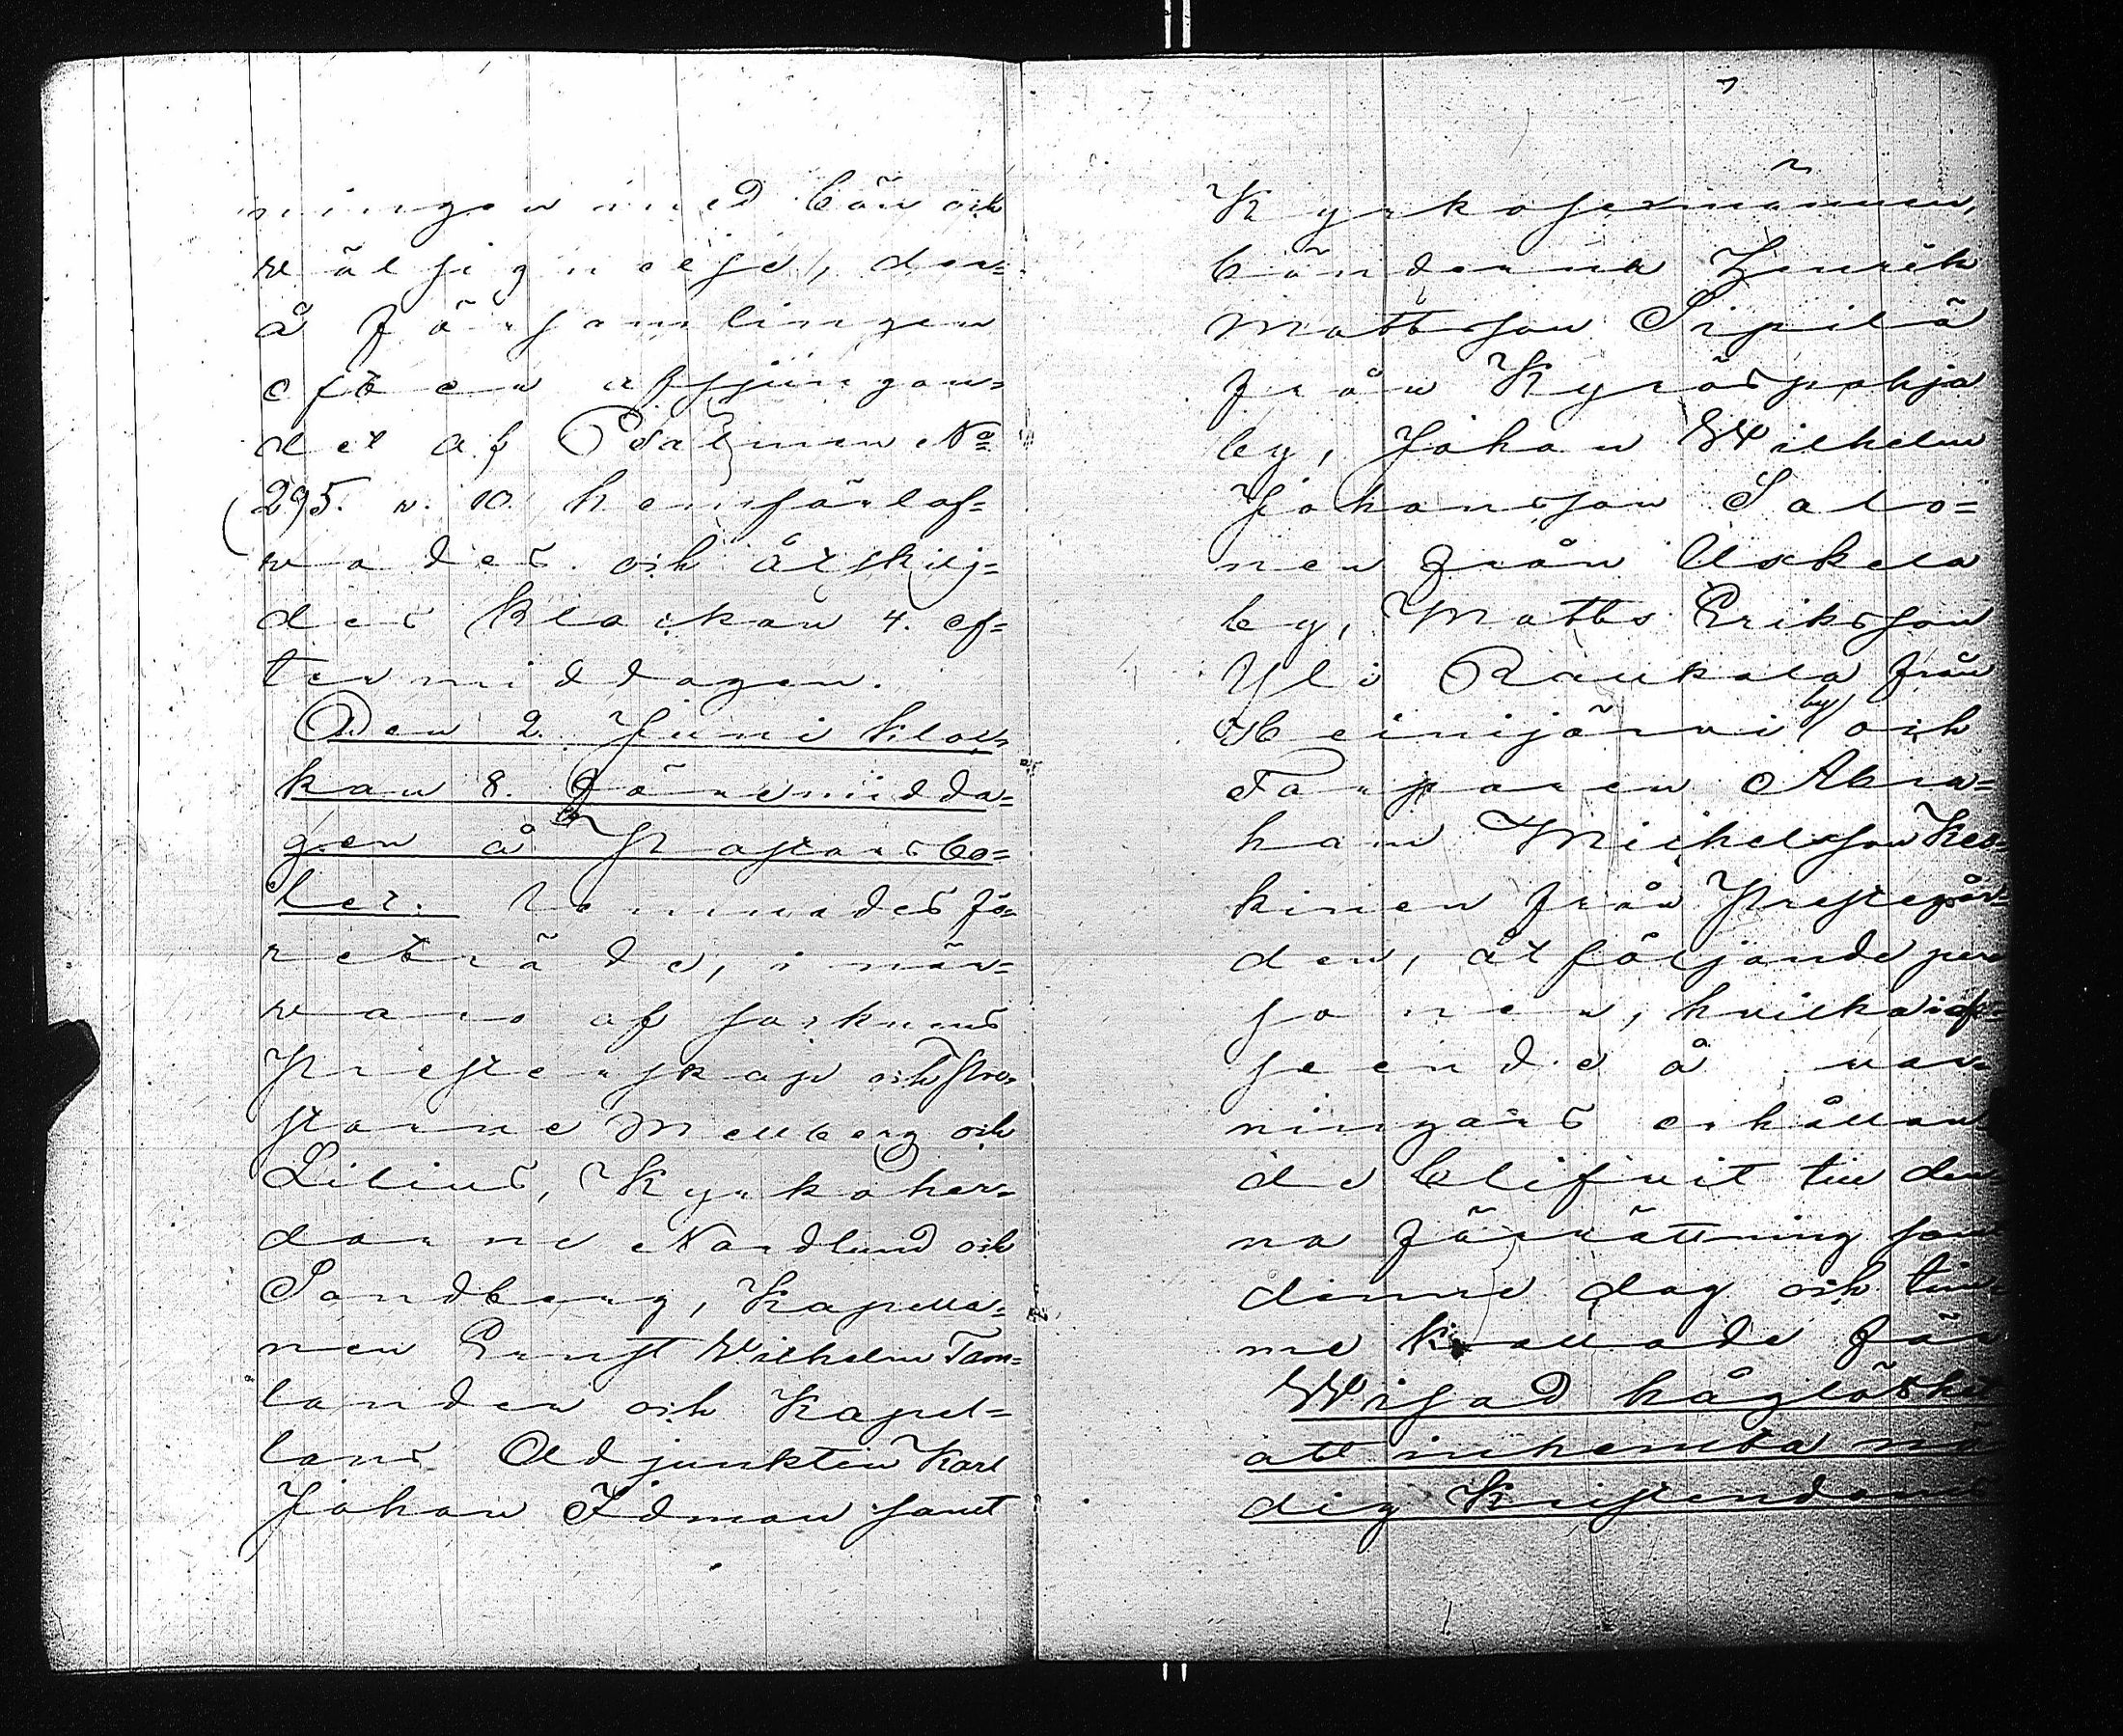 ningen med bön och
välsignelse, der-
å församlingen
efter afsjungan-
det af Psalmen No
295. v. 10. hemförlof-
wades och åtskilj-
des klockan 4. ef-
termiddagen.
Den 2. Juni kloc-
kan 8. förmidda-
gen å Prostensbo-
let. lemnades fö-
reträde, i när-
varo af socknens
Presterskap och Pro-
starne Mellberg och
Lilius, Kyrkoher-
darne Nordlund och
Sandberg, Kapella-
nen Ernst Wilhelm Tam-
lander och Kapel-
lans Adjunkten Karl
Johan Idman samt
Kyrkosexmännen,
bönderna Henrik
Mattsson Sipilä
från Kyröspohja
by, Johan Wilhelm
Johansson Salo-
nen från Uskela
by, Matts Eriksson
Yli Raukala från
Heinijärvi by och
Torparen Abra-
ham Michelsson Kes-
kinen från Prestegår-
den, åt följande per
soner, hvilka i af-
seende å var-
ningars erhållan-
de blifvit till den-
na förrättning som
denne dag och tim-
me kallade för
Wisad håglöshet
att inhemta nö
dig Kristendoms